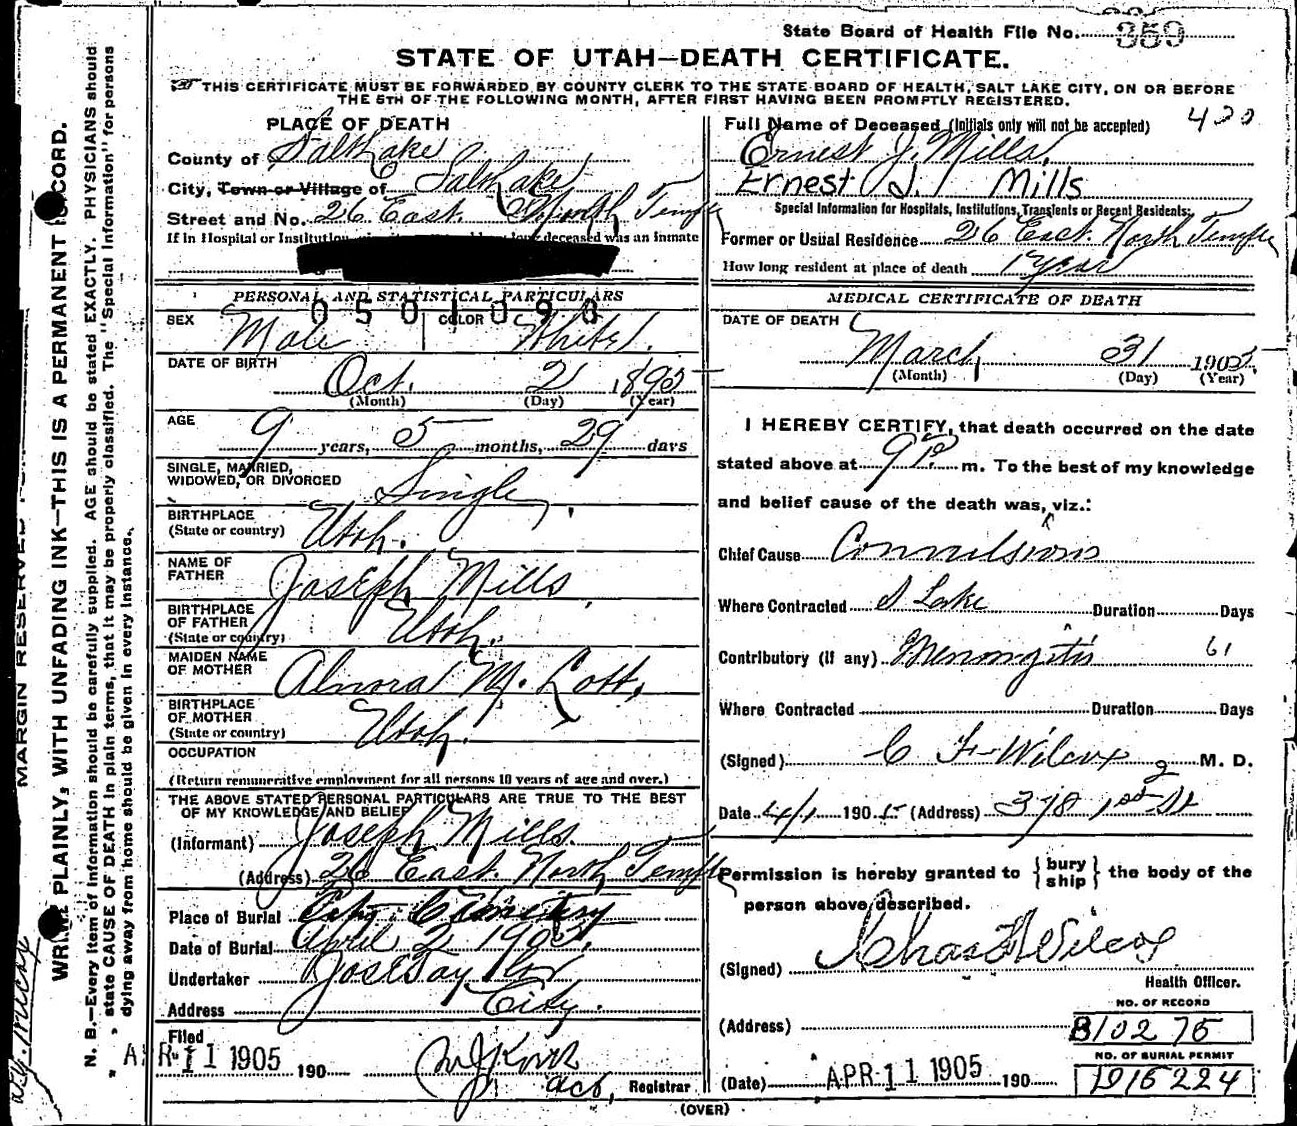 State Board of Health File No. 359
STATE OF UTAH—DEATH CERTIFICATE.
THIS CERTIFICATE MUST BE FORWARDED BY COUNTY CLERK TO THE STATE BOARD OF HEALTH, SALT LAKE CITY, ON OR BEFORE
THE 5TH OF THE FOLLOWING MONTH, AFTER FIRST HAVING BEEN PROMPTLY REGISTERED.
420
PLACE OF DEATH
County of Salt Lake
City, Town or Village of Salt Lake
Street and No. 26 East North Temple
If in Hospital or Institution deceased was an inmate
PERSONAL AND STATISTICAL PARTICULARS
0501090
SEX Male COLOR White
DATE OF BIRTH Oct. 2 1895
(Month) (Day) (Year)
AGE 9 years, 5 months, 29 days
SINGLE, MARRIED,
WIDOWED, OR DIVORCED Single
BIRTHPLACE
(State or country) Utah.
NAME OF
FATHER Joseph Mills
BIRTHPLACE
OF FATHER
(State or country) Utah.
MAIDEN NAME
OF MOTHER M. Lott
BIRTHPLACE
OF MOTHER
(State or country) Utah.
OCCUPATION
(Return remunerative employment for all persons 10 years of age and over.)
THE ABOVE STATED PERSONAL PARTICULARS ARE TRUE TO THE BEST
OF MY KNOWLEDGE AND BELIEF
(Informant) Joseph Mills.
(Address) 26 East North Temple
Place of Burial City Cemetery
Date of Burial April 2 1905.
Undertaker Jos E Taylor
Address City.
Filed
APR 11 1905 190
Registrar
Full Name of Deceased (Initials only will not be accepted)
Ernest J. Mills.
Ernest J. Mills
Special Information for Hospitals, Institutions, Transients or Recent Residents:
Former or Usual Residence 26 East North Temple
How long resident at place of death 1 Year
MEDICAL CERTIFICATE OF DEATH
DATE OF DEATH
March 31 1905
(Month) (Day) (Year)
I HEREBY CERTIFY, that death occurred on the date
stated above at 9 P. m. To the best of my knowledge
and belief cause of the death was, viz.:
Chief Cause Convulsions
Where Contracted S Lake Duration Days
Contributory (if any) Menongitis 61
Where Contracted Duration Days
(Signed) C F Wilcox M. D.
Date 4/1 1905 (Address) 378 1st St
Permission is hereby granted to {bury ship} the body of the
person above described.
(Signed) Chas F Wilcox
Health Officer.
(Address)
NO. OF RECORD
B10275
NO. OF BURIAL PERMIT
1916224
(Date) APR 11 1905 190
(OVER)
MARGIN RESERVED
WRITE PLAINLY, WITH UNFADING INK—THIS IS A PERMANENT RECORD.
N. B.—Every item of information should be carefully supplied. AGE should be stated EXACTLY. PHYSICIANS should
state CAUSE OF DEATH in plain terms, that it may be properly classified. The "Special Information" for persons
dying away from home should be given in every instance.